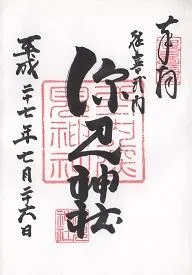 奉拝
延喜式内
深見神社
平成二十七年七月二十六日